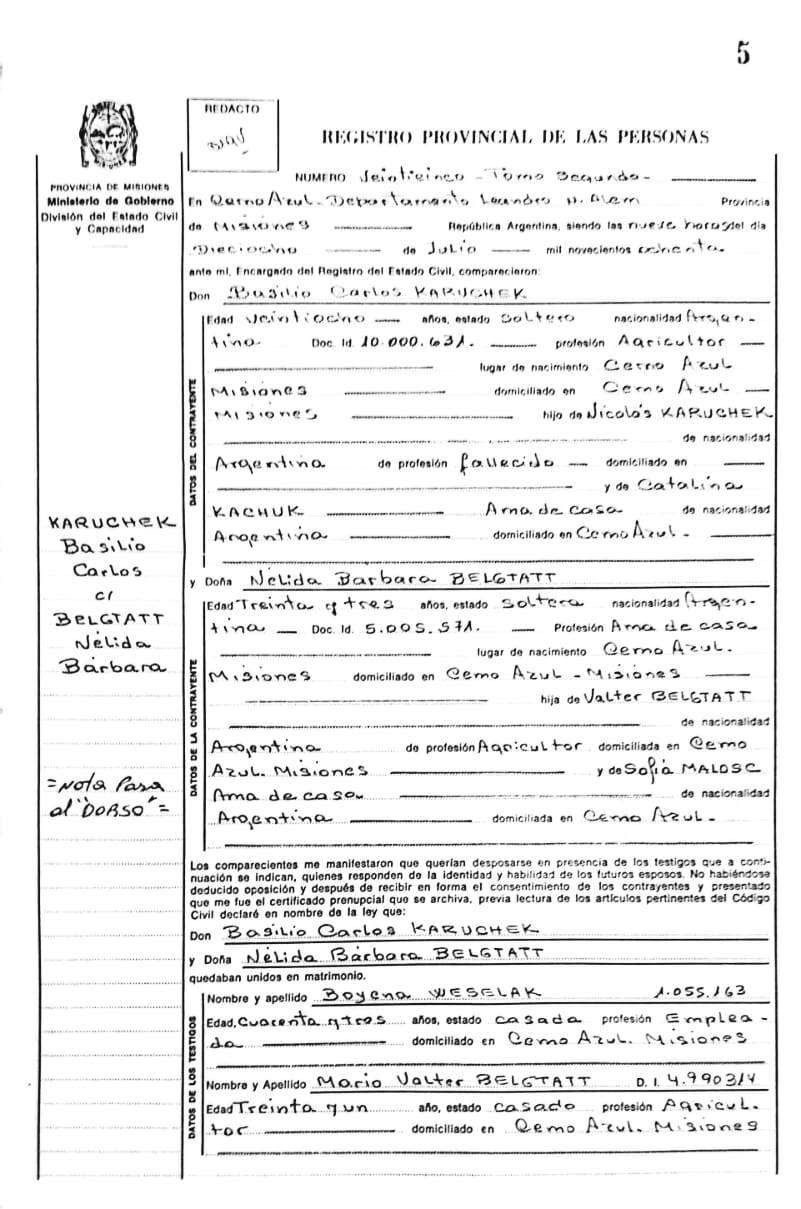 5
REDACTO
REGISTRO PROVINCIAL DE LAS PERSONAS
PROVINCIA DE MISIONES
Ministerio de Gobierno
División del Estado Civil
y Capacidad
NUMERO Veinticinco - Tomo Segundo -
En Cerro Azul - Departamento Leandro N. Alem Provincia
de Misiones República Argentina, siendo las nueve horas del día
Dieciocho de Julio mil novecientos ochenta.
ante mí, Encargado del Registro del Estado Civil, comparecieron:
Don Basilio Carlos KARUCHEK
DATOS DEL CONTRAYENTE
Edad Veintiocho años, estado Soltero nacionalidad Argen-
tina Doc. Id. 10.000.631. profesión Agricultor
lugar de nacimiento Cerro Azul
Misiones domiciliado en Cerro Azul
Misiones hijo de Nicolás KARUCHEK
de nacionalidad
Argentina de profesión fallecido domiciliado en
y de Catalina
KACHUK Ama de casa de nacionalidad
Argentina domiciliado en Cerro Azul.
y Doña Nélida Barbara BELGTATT
DATOS DE LA CONTRAYENTE
Edad Treinta y tres años, estado soltera nacionalidad Argen-
tina Doc. Id. 5.005.571. Profesión Ama de casa
lugar de nacimiento Cerro Azul.
Misiones domiciliado en Cerro Azul - Misiones
hija de Valter BELGTATT
de nacionalidad
Argentina de profesión Agricultor domiciliada en Cerro
Azul. Misiones y de Sofía MALOSC
Ama de casa de nacionalidad
Argentina domiciliada en Cerro Azul.
KARUCHEK
Basilio
Carlos
c/
BELGTATT
Nélida
Bárbara
=Nota Pasa
al "DORSO"=
Los comparecientes me manifestaron que querían desposarse en presencia de los testigos que a conti-
nuación se indican, quienes responden de la identidad y habilidad de los futuros esposos. No habiéndose
deducido oposición y después de recibir en forma el consentimiento de los contrayentes y presentado
que me fue el certificado prenupcial que se archiva, previa lectura de los artículos pertinentes del Código
Civil declaré en nombre de la ley que:
Don Basilio Carlos KARUCHEK
y Doña Nélida Bárbara BELGTATT
quedaban unidos en matrimonio.
DATOS DE LOS TESTIGOS
Nombre y apellido Boyena WESELAK 1.055.163
Edad, Cuarenta y tres años, estado casada profesión Emplea-
da domiciliado en Cerro Azul. Misiones
Nombre y Apellido Mario Valter BELGTATT D.I. 4.990314
Edad Treinta y un año, estado casado profesión Agricul.
tor domiciliado en Cerro Azul. Misiones